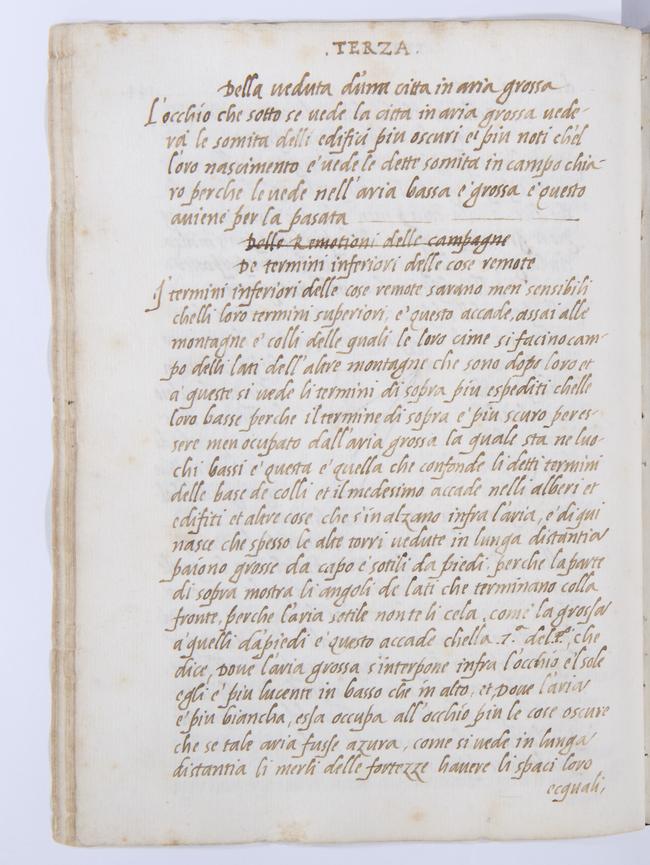 .TERZA.
Della veduta d'una citta in aria grossa
L'occhio che sotto se vede la citta in aria grossa vede-
ra le somita delli edifici piu oscuri e' piu noti che'l
loro nascimento e' vede le dette somita in campo chia-
ro perche le vede nell'aria bassa e' grossa e' questo
aviene per la pasata
Delle Remotioni delle campagne
De termini inferiori delle cose remote
I termini inferiori delle cose remote sarano men' sensibili
chelli loro termini superiori, e' questo accade, assai alle
montagne e' colli delle quali le loro cime si facino cam-
po delli lati dell'altre montagne che sono dopo loro et
a' queste si vede li termini di sopra piu espediti chelle
loro basse perche il termine di sopra e' piu scuro per es-
sere men ocupato dall'aria grossa la quale sta ne luo-
chi bassi e' questa e' quella che confonde li detti termini
delle base de colli et il medesimo accade nelli alberi et
edifiti et altre cose che s'inalzano infra l'aria, e' di qui
nasce che spesso le alte torri vedute in lunga distantia
paiono grosse da capo e' sotili da piedi. perche la parte
di sopra mostra li angoli de lati che terminano colla
fronte, perche l'aria sotile non te li cela, come la grossa
a' quelli da piedi e' questo accade chella .7.ª del .P.º, che
dice, Dove l'aria grossa s'interpone infra l'occhio e'l sole
egli e' piu lucente in basso che in alto, et, Dove l'aria
e' piu bianca, essa occupa all'occhio piu le cose oscure
che se tale aria fusse azura, come si vede in lunga
distantia li merli delle fortezze havere li spaci loro
ecquali,